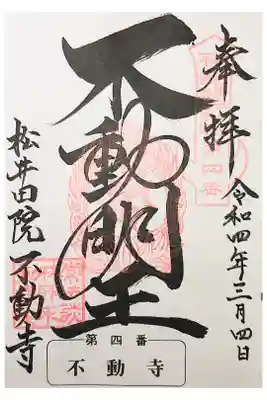 奉拝
令和四年三月四日
不動明王
松井田院
不動寺
第四番
不動寺